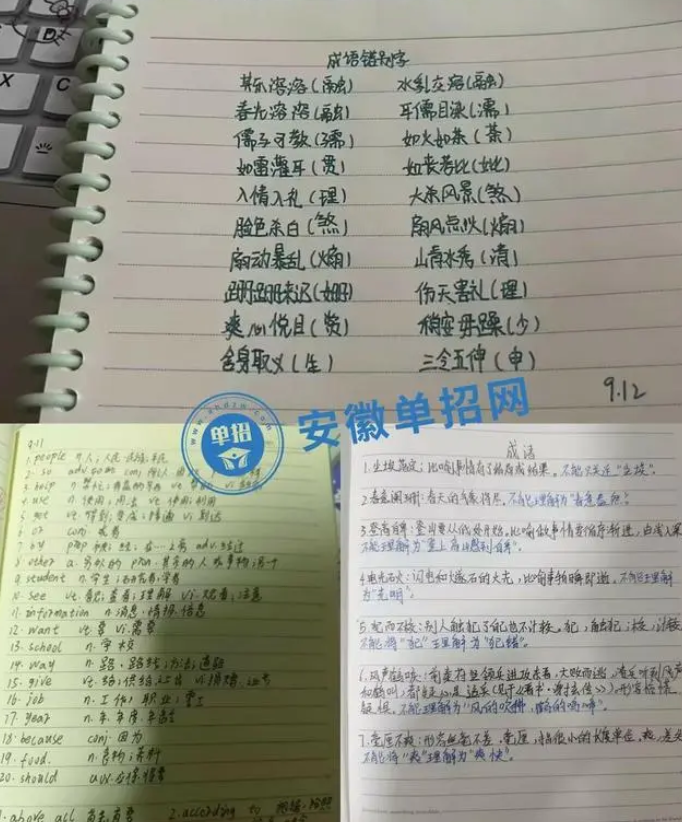 成语错别字
其乐溶溶(融) 水乳交溶(融)
春光溶溶(融) 耳儒目染(濡)
儒子可教(孺) 如火如茶(荼)
如雷灌耳(贯) 如丧考比(妣)
入情入礼(理) 大杀风景(煞)
脸色杀白(煞) 扇风点火(煽)
扇动暴乱(煽) 山青水秀(清)
跚跚来迟(姗) 伤天害礼(理)
爽心悦目(赏) 稍安毋躁(少)
舍身取义(生) 三令五伸(申)
9.12
www.ahdzw.com
单招
安徽单招网
9.11
1. people n.人;人民
2. so adv. conj.
3. ship n.
4. use n.使用;用法 vt.使用;利用
5. get vt.得到;变成 vi.到达
6. or conj.或者
7. by prep adv.经过
8. other a.另外的 pron.其他的人或事物
9. student n.学生
10. see vt.看见;理解 vi.
11. information n.消息·情报·信息
12. want vt.要 vi.需要
13. school n.学校
14. way n.路·路线;方法;道路
15. give vt.给;供给 vi.捐赠
16. job n.工作;职业;零工
17. year n.年·年度·年龄
18. because conj.因为
19. food. n.食物;养料
20. should aux.应该
1.above all 首先 2.according to 按照
成语
1.生米煮成:比喻事情有了 结果。不能
2.春意阑珊:春天的 将尽。不可理解为"春意盎然"
3.登高自卑:登山要从低处开始。比喻做事情要循序渐进,由浅入深
不能理解为"登上高山感到自卑"。
4.电光石火:闪电和燧石的火光,比喻事物瞬即逝。不能理解
为"光明"。
5.犯而不校:别人触犯了自己也不计较。犯,触犯;校,计较
不能将"犯"理解为"犯错"。
6.风声鹤唳:前秦苻坚领兵进攻东晋,大败而逃,溃兵听到风声
和鹤叫,都疑心是追兵(见于《晋书·谢玄传》)。形容惊慌
疑惧。不能理解为"风的吹拂,鹤的鸣啼"。
7.毫厘不爽:形容丝毫不差,毫厘,指很小的长度单位。爽,差失
不能将"爽"理解为"爽快"。